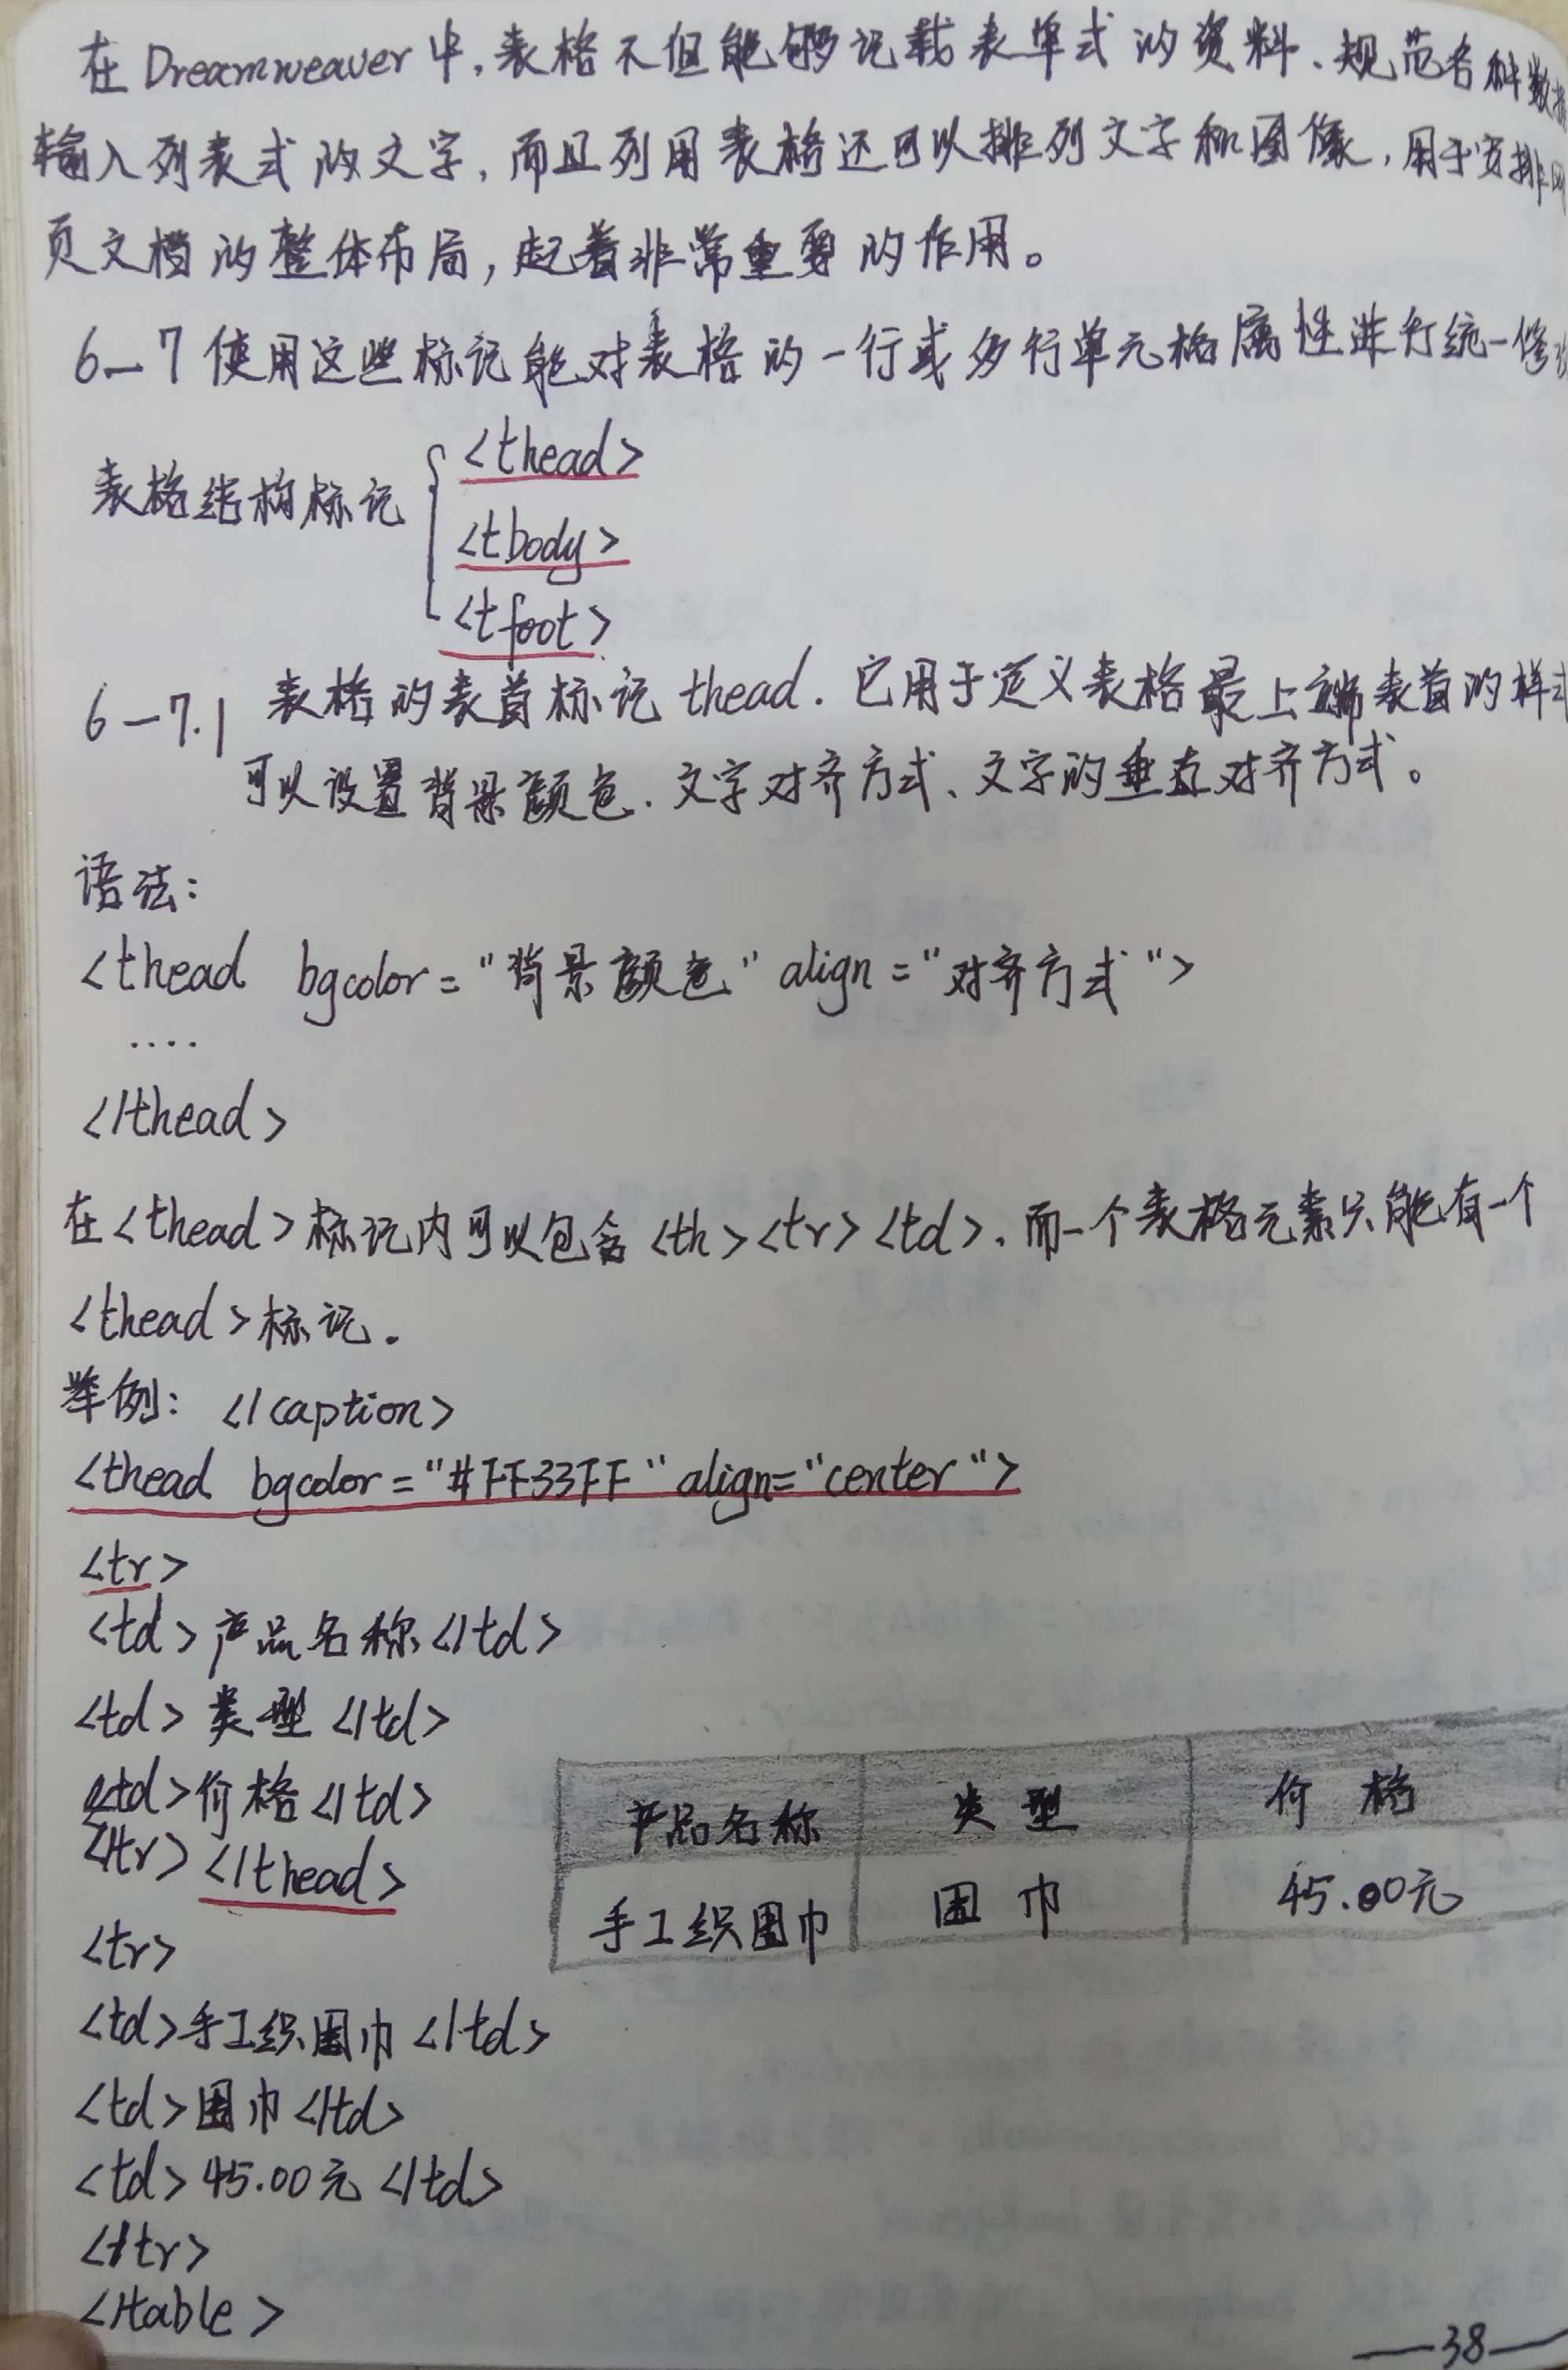 在Dreamweaver中,表格不但能够记载表单式的资料、规范各种数据
输入列表式的文字,而且列用表格还可以排列文字和图像,用于安排网
页文档的整体布局,起着非常重要的作用。
6-7 使用这些标记能对表格的一行或多行单元格属性进行统一修改
表格结构标记
<thead>
<tbody>
<tfoot>
6-7.1 表格的表首标记thead.它用于定义表格最上端表首的样式
可以设置背景颜色.文字对齐方式、文字的垂直对齐方式。
语法:
<thead bgcolor="背景颜色" align="对齐方式">
....
</thead>
在<thead>标记内可以包含<th><tr><td>.而一个表格元素只能有一个
<thead>标记.
举例: </caption>
<thead bgcolor="#FF33FF" align="center">
<tr>
<td>产品名称</td>
<td>类型</td>
<td>价格</td>
</tr></thead>
<tr>
<td>手工织围巾</td>
<td>围巾</td>
<td>45.00元</td>
</tr>
</table>
产品名称 类型 价格
手工织围巾 围巾 45.00元
—38—